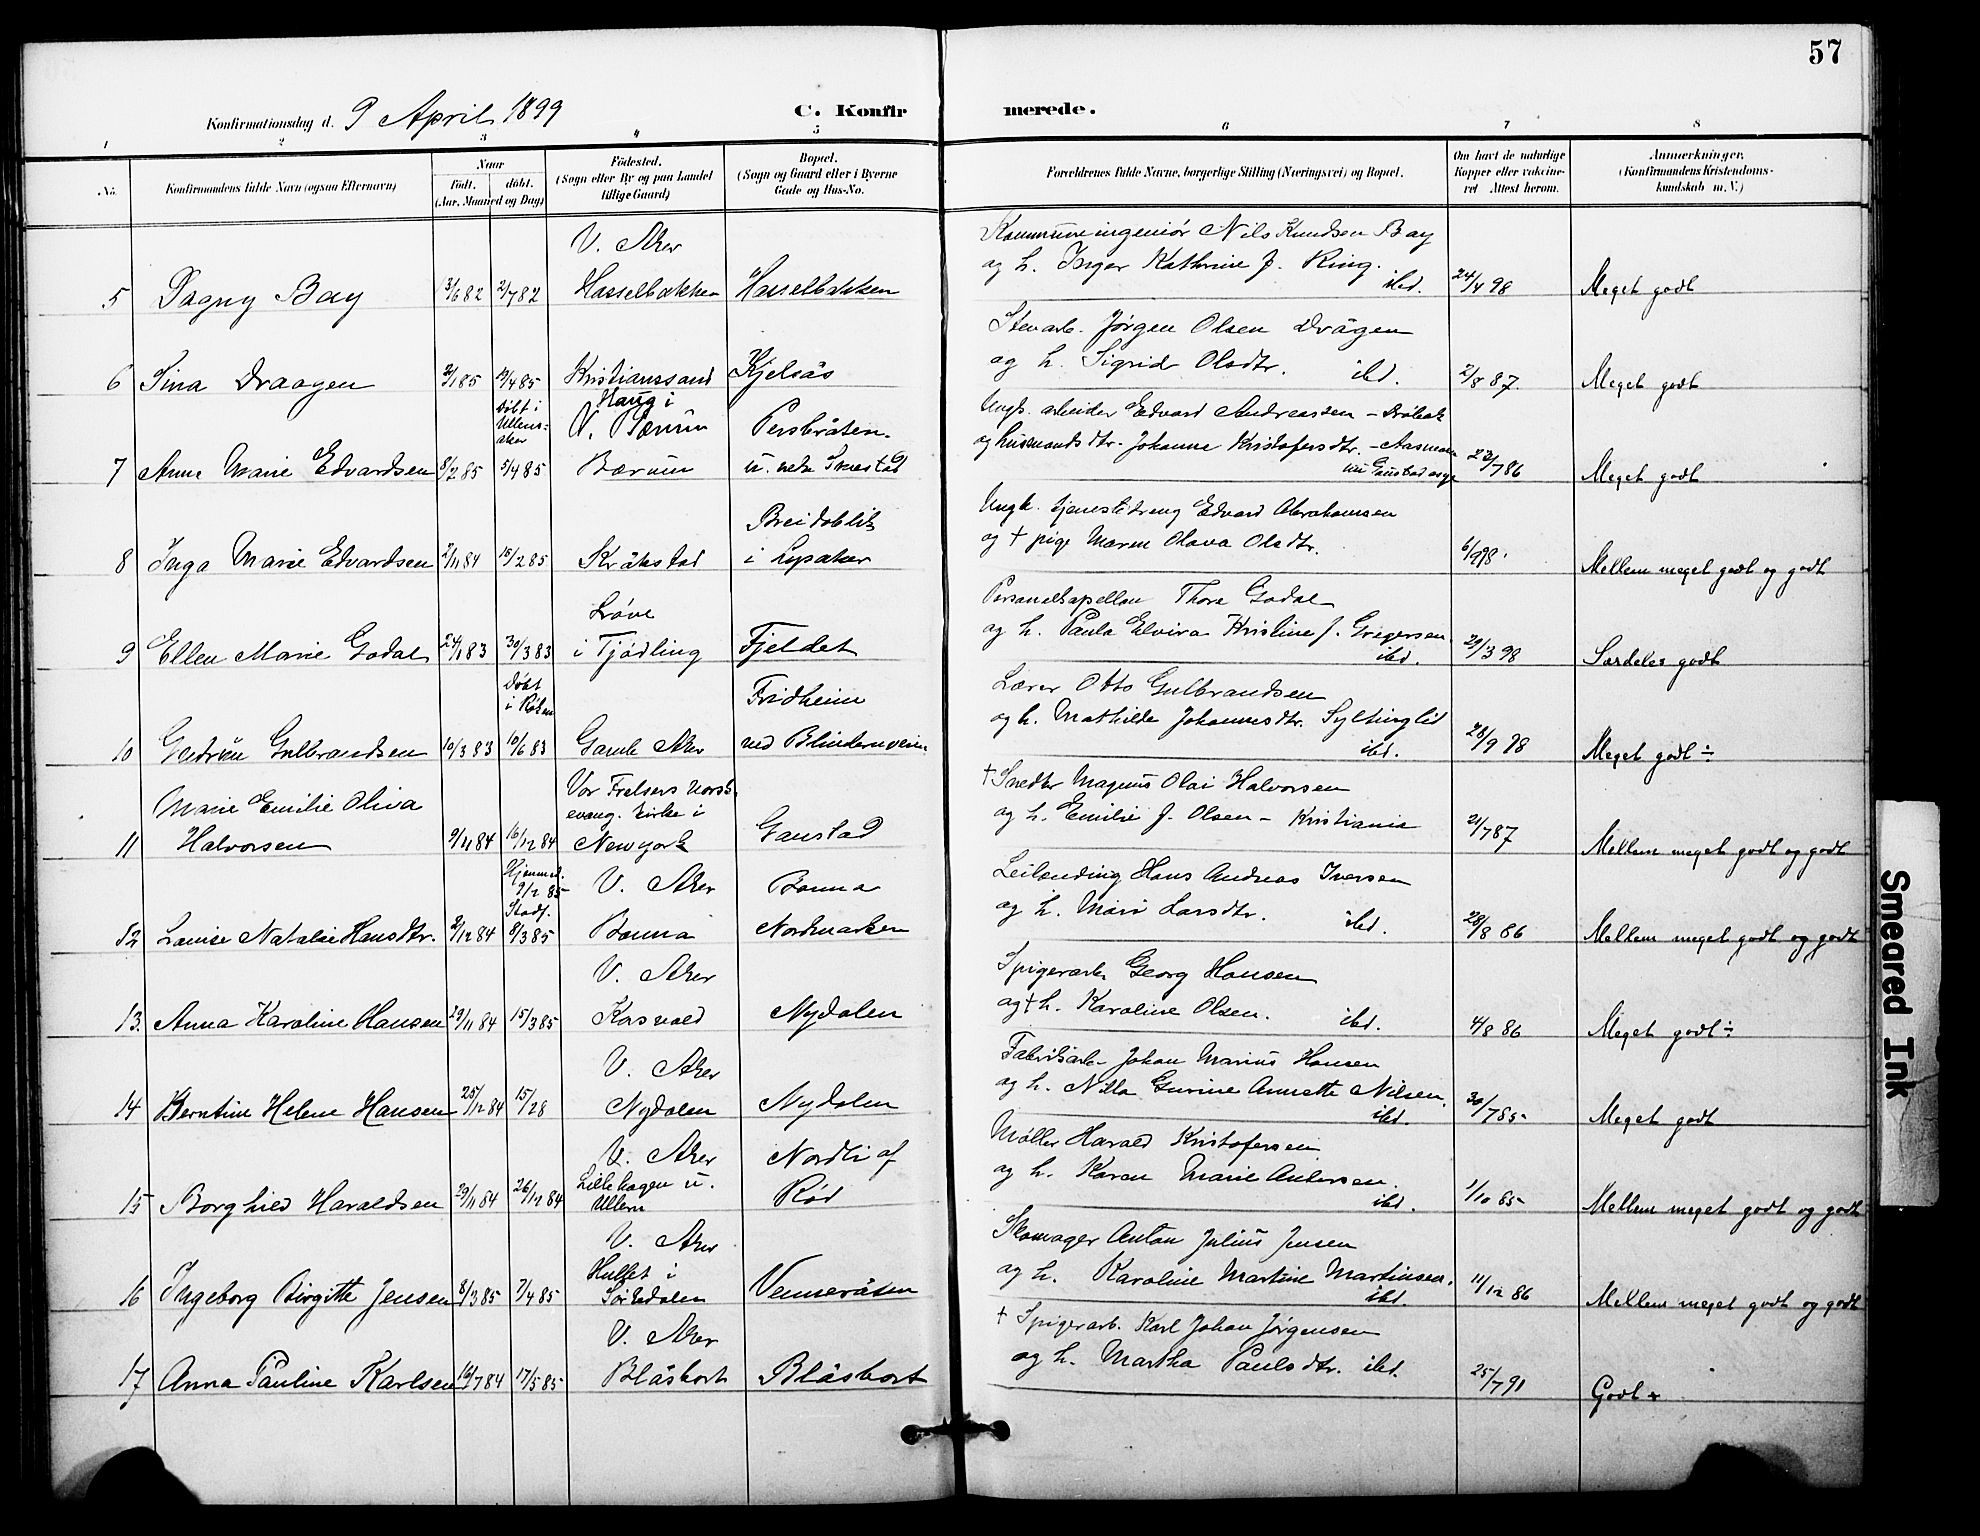 57
Konfirmationsdag d. 9 April 1899
C. Konfirmerede.
1 2 3 4 5 6 7 8
No.
Konfirmandens fulde Navn (ogsaa Efternavn)
Naar
Født. døbt.
(Aar, Maaned og Dag)
Fødested.
(Sogn eller By og paa Landet
tillige Gaard)
Bopæl.
(Sogn og Gaard eller i Byerne
Gade og Hus-No.
Forældrenes fulde Navne, borgerlige Stilling (Næringsvei) og Bopæl.
Om havt de naturlige
Kopper eller vakcine-
ret Attest herom.
Anmærkninger.
(Konfirmandens Kristendoms-
kundskab m. V.)
V. Aker
Kommuneingeniør Nils Knudsen Bay
og h. Inger Kathrine f. Ring. ibd.
5 Dagny Bay 13/6 82 2/7 82 Hasselbakken Hasselbakken 24/4 98 Meget godt
Stenarb. Jørgen Olsen Drågen
og h. Sigrid Olsdtr. ibd.
6 Sina Draagen 2/1 85 19/4 85 Kristianssand Kjelsås 2/8 87. Meget godt
Døbt i
Ullens-
aker
Haug i
V. Bærum
Persbråten.
Ungk. arbeider Edvard Andreassen – Drøbak
og husmandsdtr. Johanne Kristofersdtr. – Aasmoen
nu Gaustad asyl
7 Anne Marie Edvardsen 8/2 85 5/4 85 Bærum u. nedr Smestad 23/7 86 Meget godt
Breidablik
Ungk. tjenestedreng Edvard Abrahamsen
og † pige Maren Olava Olsdtr.
8 Inga Marie Edvardsen 2/11 84 15/2 85 Kråkstad i Lysaker 6/9 98. Mellem meget godt og godt
Løve
Personelkapellan Thore Godal
og h. Paula Elvira Kristine f. Gregersen
ibd.
9 Ellen Marie Godal 24/1 83 30/3 83 i Tjødling Fjeldet 29/3 98 Særdeles godt
Døbt
i Røken
Fridheim
Lærer Otto Gulbrandsen
og h. Mathilde Johannesdtr. Syltinglid
ibd.
10 Gudrun Gulbrandsen 10/3 83 10/6 83 Gamle Aker ved Blindernveien 28/9 98 Meget godt ÷
Marie Emilie Oliva
Vor Frelsers norsk
evang. kirke i
† Snedker Magnus Olai Halvorsen
og h. Emilie f. Olsen – Kristiania
11 Halvorsen 9/11 84 16/12 84 Newyork Gaustad 21/7 87 Mellem meget godt og godt
Hjemmed.
9/2 85
Stadf.
V. Aker
Bonna
Leilending Hans Andreas Iversen
og h. Mari Larsdtr. ibd.
12 Louise Natalie Hansdtr. 2/12 84 8/3 85 Bonna Nordmarken 28/8 86 Mellem meget godt og godt
V. Aker
Spigerarb. Georg Hansen
og † h. Karoline Olsen. ibd.
13. Anna Karoline Hansen 29/11 84 15/3 85 Korsvold Nydalen 4/8 86 Meget godt ÷
V. Aker
Fabrikarb. Johan Marius Hansen
og h. Nilla Gurine Annette Nilsen.
ibd.
14 Berntine Helene Hansen 25/12 84 15/2 8 Nydalen Nydalen 30/7 85 Meget godt
V. Aker
Lillehagen u.
Ullern
Nordli af
Møller Harald Kristofersen
og h. Karen Marie Andersen.
ibd.
15 Borghild Haraldsen 29/11 84 26/12 84 Rød 1/10 85 Mellem meget godt og godt
V. Aker
Hullet i
Skomager Anton Julius Jensen
og h. Karoline Martine Martinsen.
ibd.
16 Ingeborg Birgitte Jensen 8/3 85 7/4 85 Sørkedalen Venneråsen 11/12 86 Mellem meget godt og godt
V. Aker
† Spigerarb. Karl Johan Jørgensen
og h. Martha Paulsdtr. ibd.
17 Anna Pauline Karlsen 16/7 84 17/5 85 Blåsbort Blåsbort 25/7 91 Godt +
Smeared Ink